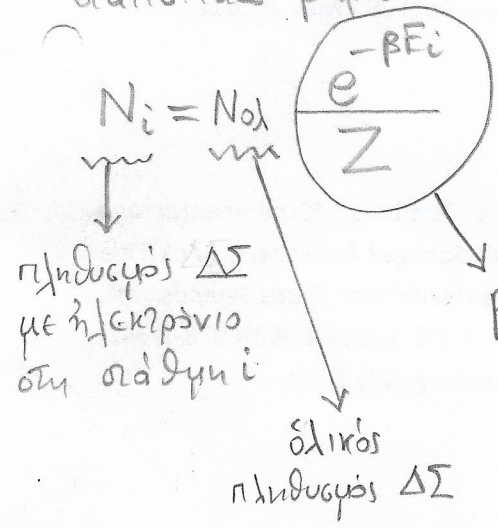 Nᵢ = Nολ e^{-βEᵢ} / Z
πληθυσμός ΔΣ
με ἠλεκτρόνιο
στη στάθμη i
ὁλικός
πληθυσμός ΔΣ